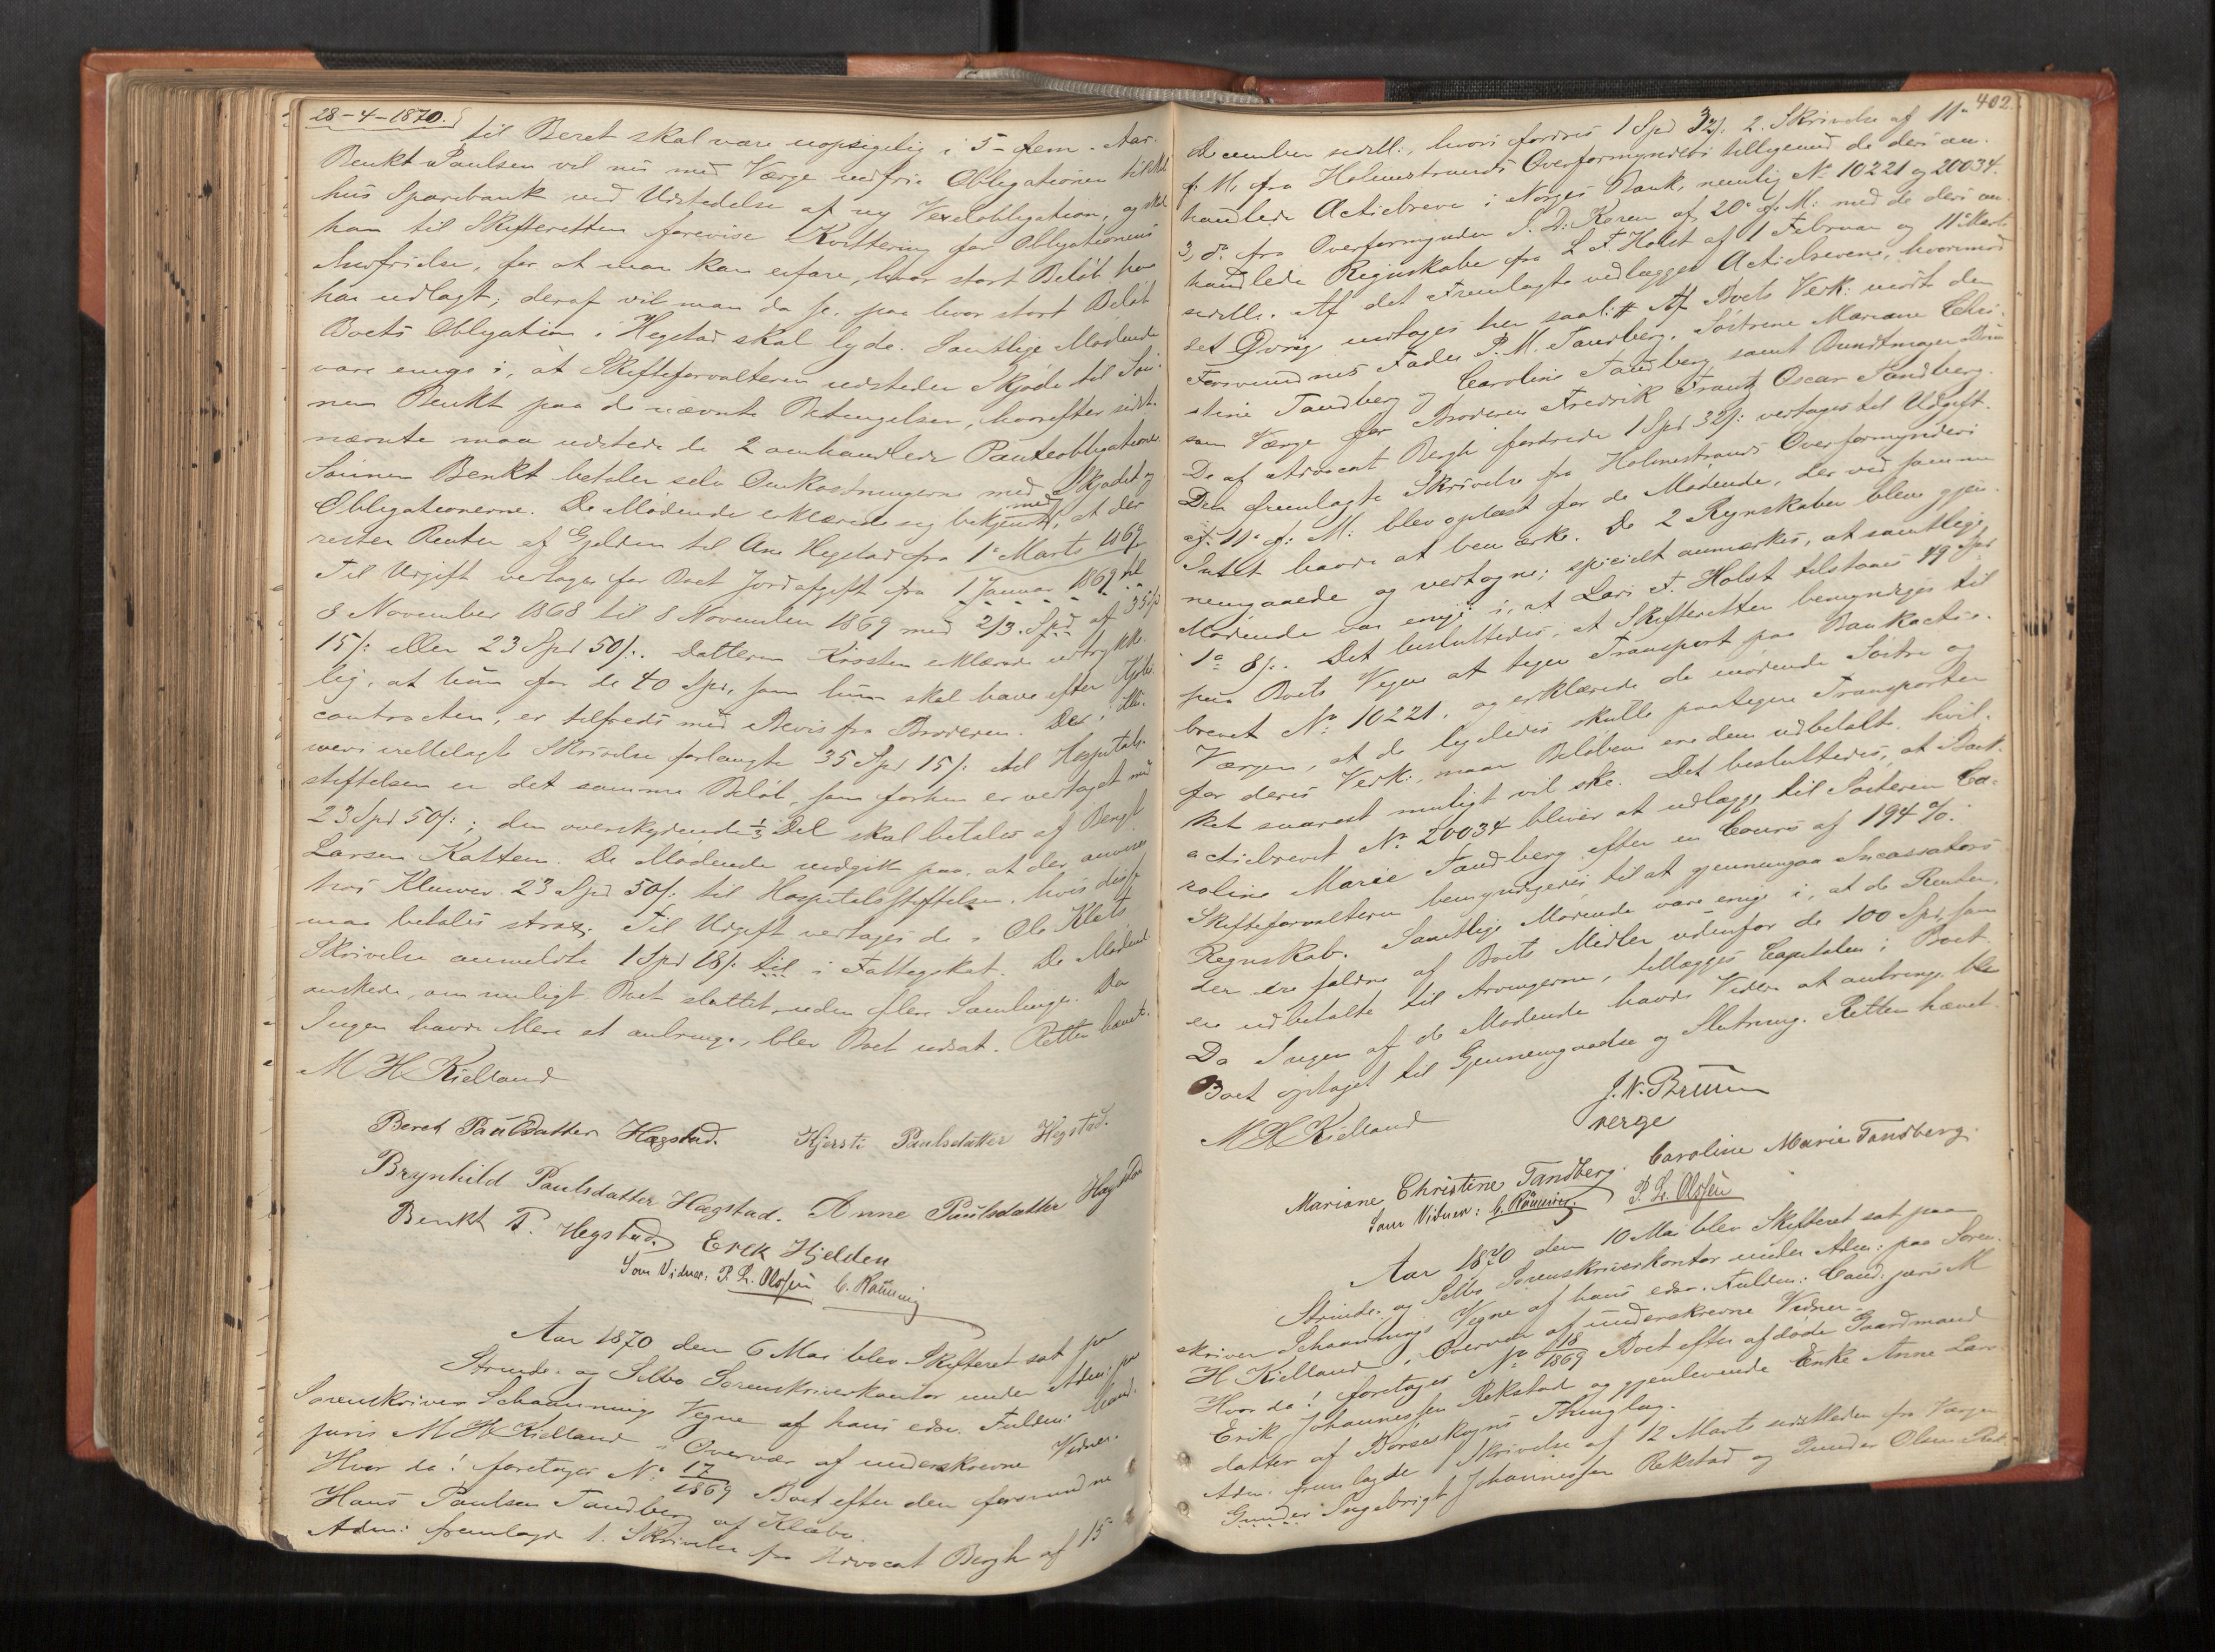 28-4-1870.
til Beret skal være uopsigelig i 5- fem- Aar.
Benkt Paulsen vil nu med Værge udfrie Obligationen til
hus Sparebank ved Udstedelse af ny Vexelobligation, og skal
han til Skifteretten forevise Kvittering for Obligationens
Indfrielse, for at man kan erfare, hvor stort Beløb han
har udlagt; deraf vil man da se, paa hvor stort Beløb
Boets Obligation i Hegstad skal lyde. Samtlige Mødende
vare enige i, at Skifteforvalteren udsteder Skjøde til Søn-
nen Benkt paa de nævnte Betingelser, hvorefter sidst-
nævnte maa udstede de 2 omhandlede Panteobligationer.
Sønnen Benkt betaler selv Omkostningerne med Skjødet og
Obligationerne. De Mødende erklærede sig bekjendt med, at der
rester Renter af Gjelden til Ane Hegstad fra 1ste Marts 1869.
Til Udgift vedtages for Boet Jordafgift fra 1 Januar 1869 til
8 November 1868 til 8 November 1869 med 2/3 Spd. af 35 Spd
15/: eller 23 Spd 50/:. Datteren Kirsten erklærede udtrykke-
lig, at hun for de 40 Spd, som hun skal have efter Kjøbe-
contracten, er tilfreds med Bevis fra Broderen. Det i
vers vedtilagte Skrivelse forlangte 35 Spd 15/: til Hospitals-
stiftelsen er det samme Beløb, som forhen er vedtaget med
23 Spd 50/:; den overskydende 1/3 Del skal betales af Bengt
Larsen Kattem. De Mødende indgik paa, at der anvises
hos Kluwer 23 Spd 50/: til Hospitalsstiftelsen, hvis disse
maa betales strax. Til Udgift vedtages de i Ole Klets
Skrivelse anmeldte 1 Spd 18/: til i Fattigskat. De Mødende
ønskede, om muligt, Boet sluttet uden flere Samlinger. Da
Ingen havde Mere at anbringe, blev Boet udsat. Retten hævet.
M H Kielland
Beret Paulsdatter Hægstad. Kjersti Paulsdatter Hegstad.
Brynhild Paulsdatter Hægstad. Anne Paulsdatter Hægstad
Benkt P. Hegstad. Erik Hjelden
Som Vidner: P. L. Olssen C. Rønning
Aar 1870 den 6 Mai blev Skifteret sat paa
Strinde- og Selbo Sorenskriverkontor under Adm: paa
Sorenskriver Schaannings Vegne af hans edsv. Fuldm: Cand.
juris M H Kielland i Overvær af underskrevne Vidner.
Hvor da! foretages No 17/1869 Boet efter den forsvundne
Hans Paulsen Tandberg af Klæbo.
Adm: fremlagde 1. Skrivelse fra Advocat Bergh af 15de
402
december sidstl:, hvori fordres 1 Spd 32/: 2. Skrivelse af 11te
f: M: fra Holmestrands Overformynderi tilligemed de deri om-
handlede Actiebreve i Norges Bank, nemlig No 10221 og 20034.
3, do fra Overformynder S. D. Koren af 20de f: M: med de deri om-
handlede Regnskaber fra L F. Holst af 1 Februar og 11te Marts
sidstl. Af det Fremlagte vedlægges Actiebrevene, hvorimod
det Øvrige indtages her saal: # Af Boets Vedk: mødt den
Forsvundnes Fader P. M. Tandberg, Søstrene Mariane Chri-
stine Tandberg og Caroline Tandberg samt Bundtmager Bruun
som Værge for Broderen Fredrik Frantz Oscar Tandberg.
De af Advocat Bergh fordrede 1 Spd 32/: vedtages til Udgift.
Den fremlagte Skrivelse fra Holmestrands Overformynderi
af 11te f: M: blev oplæst for de Mødende, der ved samme
Intet havde at bemærke. De 2 Regnskaber bleve gjen-
nemgaaede og vedtagne; specielt anmærkes, at samtlige
Mødende var enige i, at Lars F. Holst tilstaaes 49 Spd
1 o: 8/:. Det besluttedes, at Skifteretten bemyndiges til
paa Boets Vegne at tegne Transport paa Bankactie-
brevet No 10221, og erklærede de mødende Søstre og
Værgen, at de ligeledes skulle paategne Transporten
for deres Vedk:, naar Beløbene ere dem udbetalt, hvil-
ket snarest muligt vil ske. Det besluttedes, at Bank-
actiebrevet No 20034 bliver at udlægge til Søsteren Ca-
roline Marie Tandberg efter en Cours af 194 %.
Skifteforvalteren bemyndigedes til at gjennemgaa Incassators
Regnskab. Samtlige Mødende vare enige i, at de Renter,
der ere faldne af Boets Midler udenfor de 100 Spd, som
ere udbetalte til Arvingerne, tillægges Capitalen i Boet
Da Ingen af de Mødende havde Videre at anbringe, blev
Boet optaget til Gjennemgaaelse og Slutning. Retten hævet.
M H Kielland J. N. Bruun
verge
Mariane Christine Tandberg. Caroline Marie Tandberg.
Som Vidner: C. Rønning. P. L. Olssen
Aar 1870 den 10 Mai blev Skifteret sat paa
Strinde- og Selbo Sorenskriverkontor under Adm: paa Soren-
skriver Schaannings Vegne af hans edsv. Fuldm: Cand. juris M
H Kielland i Overvær af underskrevne Vidner.
Hvor da! foretages No 118/1869 Boet efter afdøde Gaardmand
Erik Johannessen Rekstad og gjenlevende Enke Anne Lars-
datter af Børseskogns Thinglag.
Adm: fremlagde 1 Skrivelse af 12 Marts sidstleden fra Værgen
Gunder Ingebrigt Johannessen Rekstad og Gunder Olsen Rek-